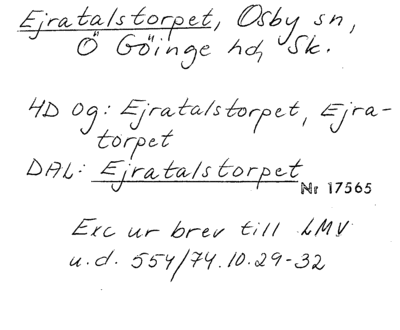 Ejratalstorpet, Osby sn,
Ö Göinge hd, Sk.
HD Og: Ejratalstorpet, Ejra-
torpet
DAL: Ejratalstorpet
Nr 17565
Exc ur brev till LMV
u.d. 554/74.10.29-32